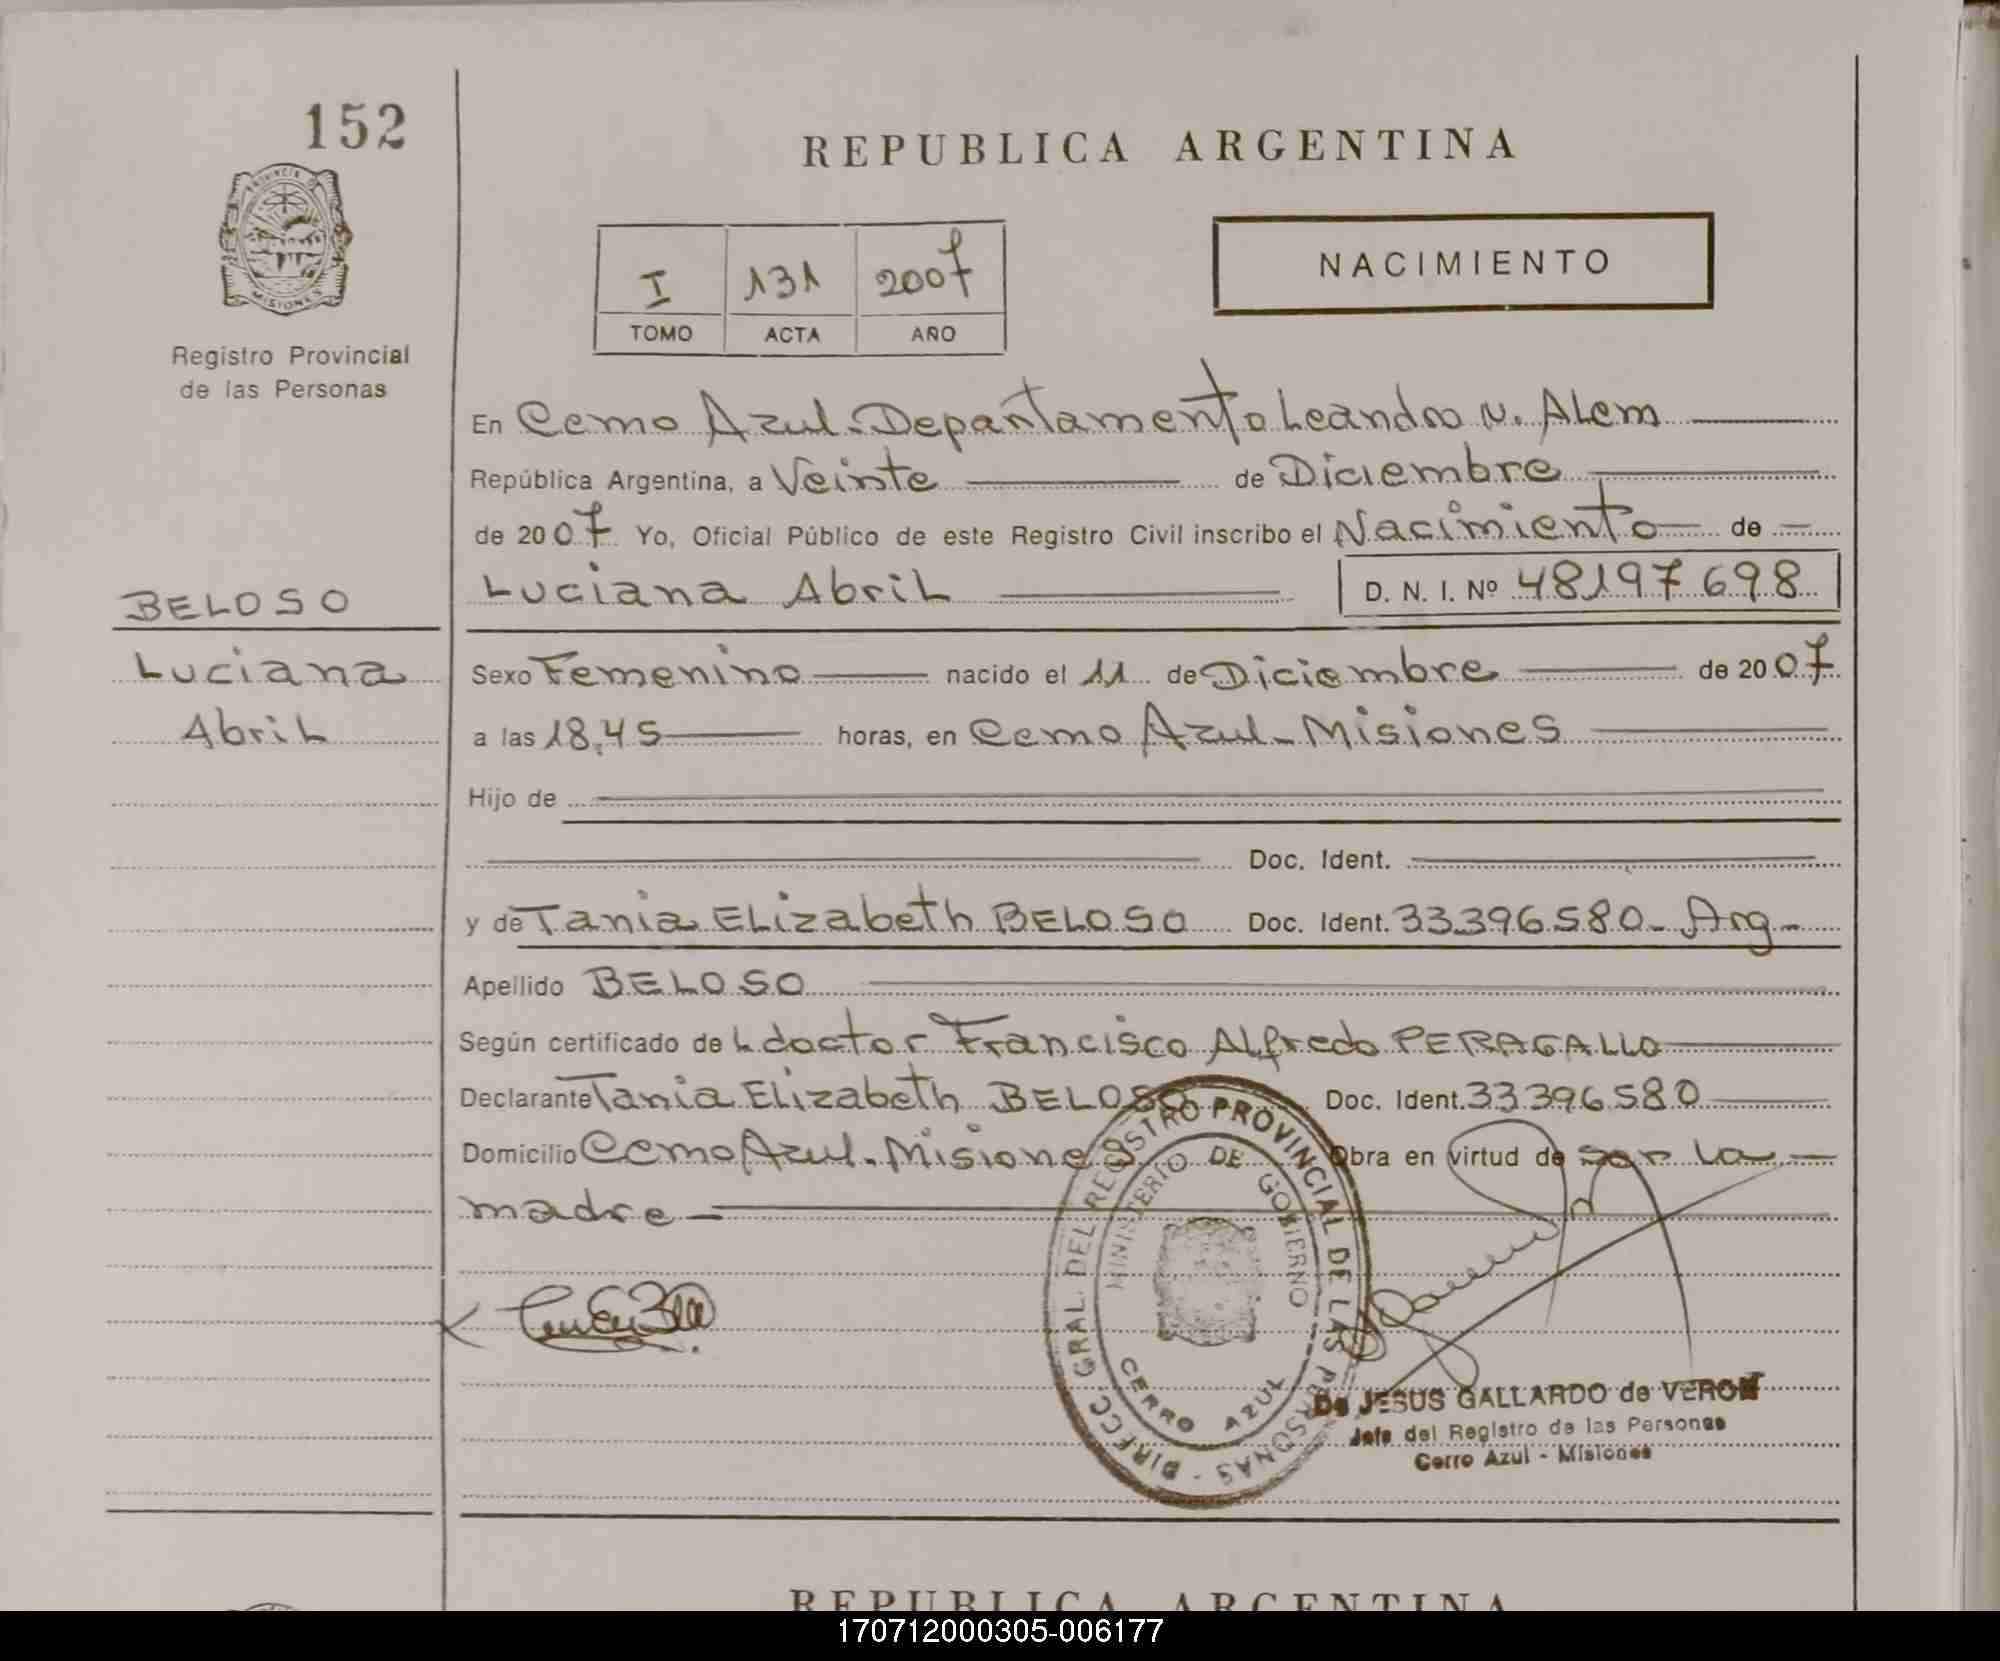 152
REPUBLICA ARGENTINA
PROVINCIA D
MISIONES
Registro Provincial
de las Personas
I 131 2007
TOMO ACTA AÑO
NACIMIENTO
En Cerro Azul. Departamento Leandro N. Alem
República Argentina, a Veinte de Diciembre
de 2007 Yo, Oficial Público de este Registro Civil inscribo el Nacimiento de
BELOSO
Luciana Abril D. N. I. Nº 48197698
Luciana
Sexo Femenino nacido el 11 de Diciembre de 2007
Abril
a las 18,45 horas, en Cerro Azul - Misiones
Hijo de
Doc. Ident.
y de Tania Elizabeth BELOSO Doc. Ident. 33396580 - Arg -
Apellido BELOSO
Según certificado del doctor Francisco Alfredo PERAGALLO
Declarante Tania Elizabeth BELOSO Doc. Ident. 33396580
Domicilio Cerro Azul. Misiones Obra en virtud de ser la
madre
DIRECC GRAL. DEL REGISTRO PROVINCIAL DE LAS PERSONAS -
MINISTERIO DE GOBIERNO
CERRO AZUL
De JESUS GALLARDO de VERON
Jefe del Registro de las Personas
Cerro Azul - Misiones
REPUBLICA ARGENTINA
170712000305-006177